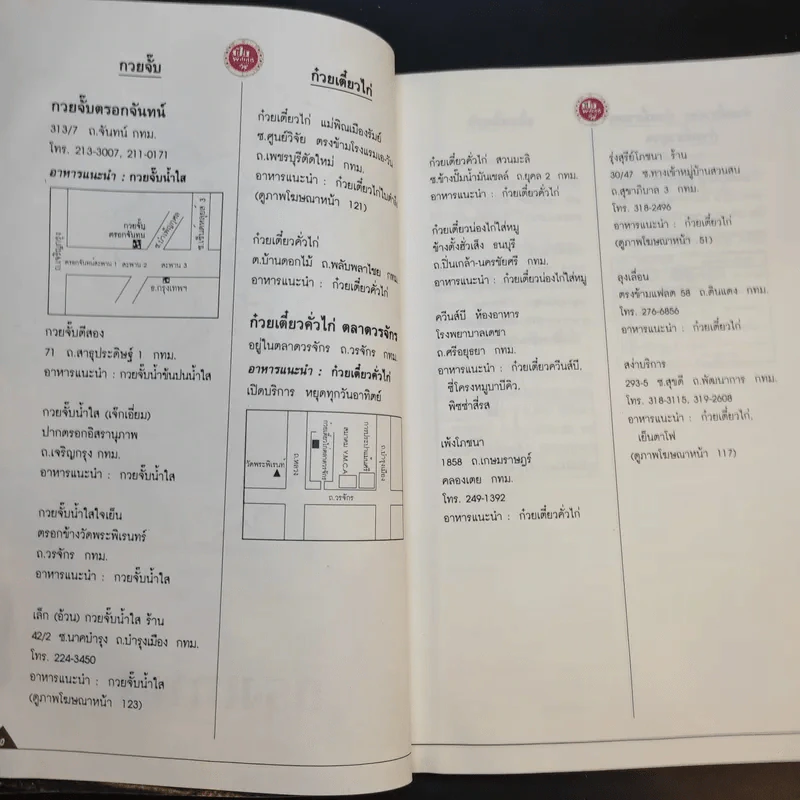 กวยจั๊บ
กวยจั๊บตรอกจันทน์
313/7 ถ.จันทน์ กทม.
โทร. 213-3007, 211-0171
อาหารแนะนำ : กวยจั๊บน้ำใส
ถ.เจริญกรุง
กวยจั๊บ
ตรอกจันทน์
ตรอกจันทน์สะพาน 1 สะพาน 2 สะพาน 3
ซ.บำเพ็ญกุศล
ซ.เซ็นต์หลุยส์ 3
ธ.กรุงเทพฯ
กวยจั๊บตีสอง
71 ถ.สาธุประดิษฐ์ 1 กทม.
อาหารแนะนำ : กวยจั๊บน้ำข้นปนน้ำใส
กวยจั๊บน้ำใส (เจ๊กเอี่ยม)
ปากตรอกอิสรานุภาพ
ถ.เจริญกรุง กทม.
อาหารแนะนำ : กวยจั๊บน้ำใส
กวยจั๊บน้ำใสใจเย็น
ตรอกข้างวัดพระพิเรนทร์
ถ.วรจักร กทม.
อาหารแนะนำ : กวยจั๊บน้ำใส
เล็ก (อ้วน) กวยจั๊บน้ำใส ร้าน
42/2 ซ.นาคบำรุง ถ.บำรุงเมือง กทม.
โทร. 224-3450
อาหารแนะนำ : กวยจั๊บน้ำใส
(ดูภาพโฆษณาหน้า 123)
ก๋วยเตี๋ยวไก่
ก๋วยเตี๋ยวไก่ แม่พิณเมืองรัมย์
ซ.ศูนย์วิจัย ตรงข้ามโรงแรมเอ-วัน
ถ.เพชรบุรีตัดใหม่ กทม.
อาหารแนะนำ : ก๋วยเตี๋ยวไก่
(ดูภาพโฆษณาหน้า 121)
ก๋วยเตี๋ยวคั่วไก่
ต.บ้านดอกไม้ ถ.พลับพลาไชย กทม.
อาหารแนะนำ : ก๋วยเตี๋ยวคั่วไก่
ก๋วยเตี๋ยวคั่วไก่ ตลาดวรจักร
อยู่ในตลาดวรจักร ถ.วรจักร กทม.
อาหารแนะนำ : ก๋วยเตี๋ยวคั่วไก่
เปิดบริการ หยุดทุกวันอาทิตย์
วัดพระพิเรนท์
ถ.หลวง
สมาคม Y.M.C.A
ถ.บำรุงเมือง
ถ.วรจักร
ก๋วยเตี๋ยวคั่วไก่ สวนมะลิ
ซ.ข้างปั๊มน้ำมันเชลล์ ถ.ยุคล 2 กทม.
อาหารแนะนำ : ก๋วยเตี๋ยวคั่วไก่
ก๋วยเตี๋ยวน่องไก่ใส่หมู
ข้างตั้งฮั่วเส็ง ธนบุรี
ถ.ปิ่นเกล้า-นครชัยศรี กทม.
อาหารแนะนำ : ก๋วยเตี๋ยวน่องไก่ใส่หมู
ควีนส์บี ห้องอาหาร
โรงพยาบาลเดชา
ถ.ศรีอยุธยา กทม.
อาหารแนะนำ : ก๋วยเตี๋ยวควีนส์บี,
ซี่โครงหมูบาบีคิว,
พิซซ่าสี่รส
เพ้งโภชนา
1858 ถ.เกษมราษฎร์
คลองเตย กทม.
โทร. 249-1392
อาหารแนะนำ : ก๋วยเตี๋ยวคั่วไก่
รุ่งสุรีย์โภชนา ร้าน
30/47 ซ.ทางเข้าหมู่บ้านสวนสน
ถ.สุขาภิบาล 3 กทม.
โทร. 318-2496
อาหารแนะนำ : ก๋วยเตี๋ยวไก่
(ดูภาพโฆษณาหน้า 51)
ลุงเลื่อน
ตรงข้ามแฟลต 58 ถ.ดินแดง กทม.
โทร. 276-6856
อาหารแนะนำ : ก๋วยเตี๋ยวไก่
สง่าบริการ
293-5 ซ.สุขดี ถ.พัฒนาการ กทม.
โทร. 318-3115, 319-2608
อาหารแนะนำ : ก๋วยเตี๋ยวไก่,
เย็นตาโฟ
(ดูภาพโฆษณาหน้า 117)